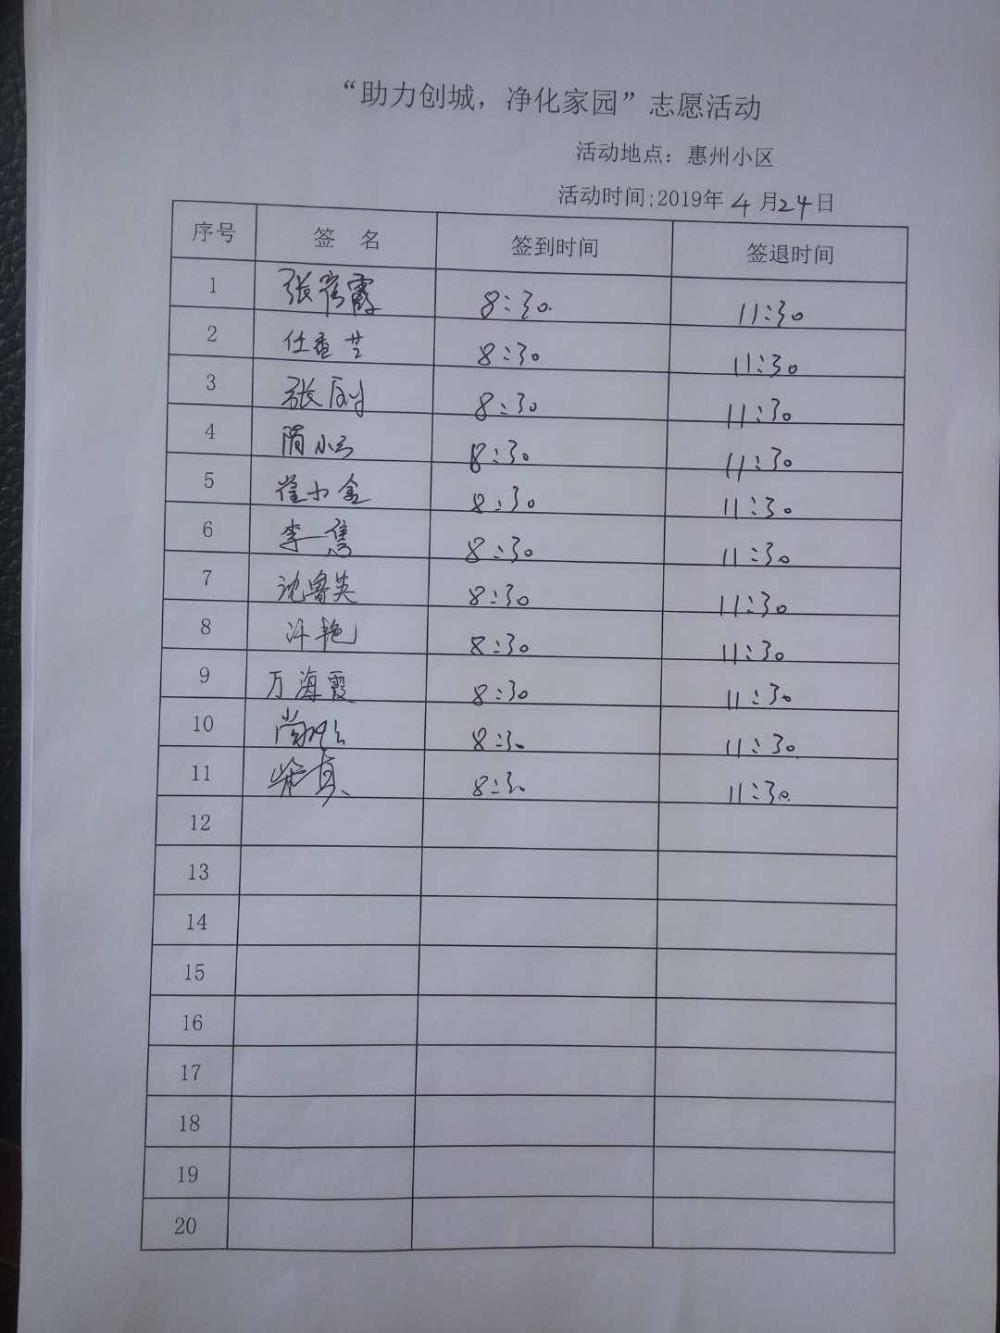 “助力创城，净化家园”志愿活动
活动地点：惠州小区
活动时间:2019年 4 月24日
序号 签 名 签到时间 签退时间
1 张霞 8:30. 11:30
2 任香兰 8:30 11:30
3 张 8:30 11:30
4 隋小云 8:30 11:30
5 崔小金 8:30 11:30
6 李一隽 8:30 11:30
7 沈鲁英 8:30 11:30
8 许艳 8:30 11:30
9 万海霞 8:30 11:30
10 8:30 11:30.
11 柴真 8:30 11:30.
12
13
14
15
16
17
18
19
20